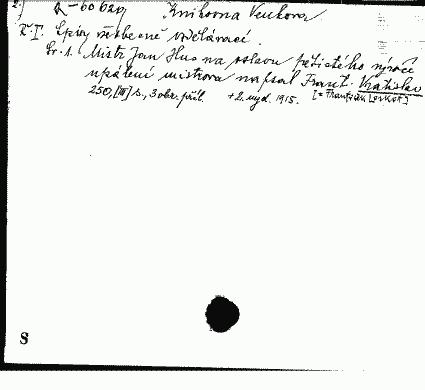 Knihovna Venkova
Ř I. Spisy všeobecně vzdělávací.
Sv. 1. Mistr Jan Hus na oslavu pětistého výročí
upálení mistrova napsal Frant. Vratislav
250, [III] s., 3 obr. příl. + 2. vyd. 1915. [= František Loskot]
S